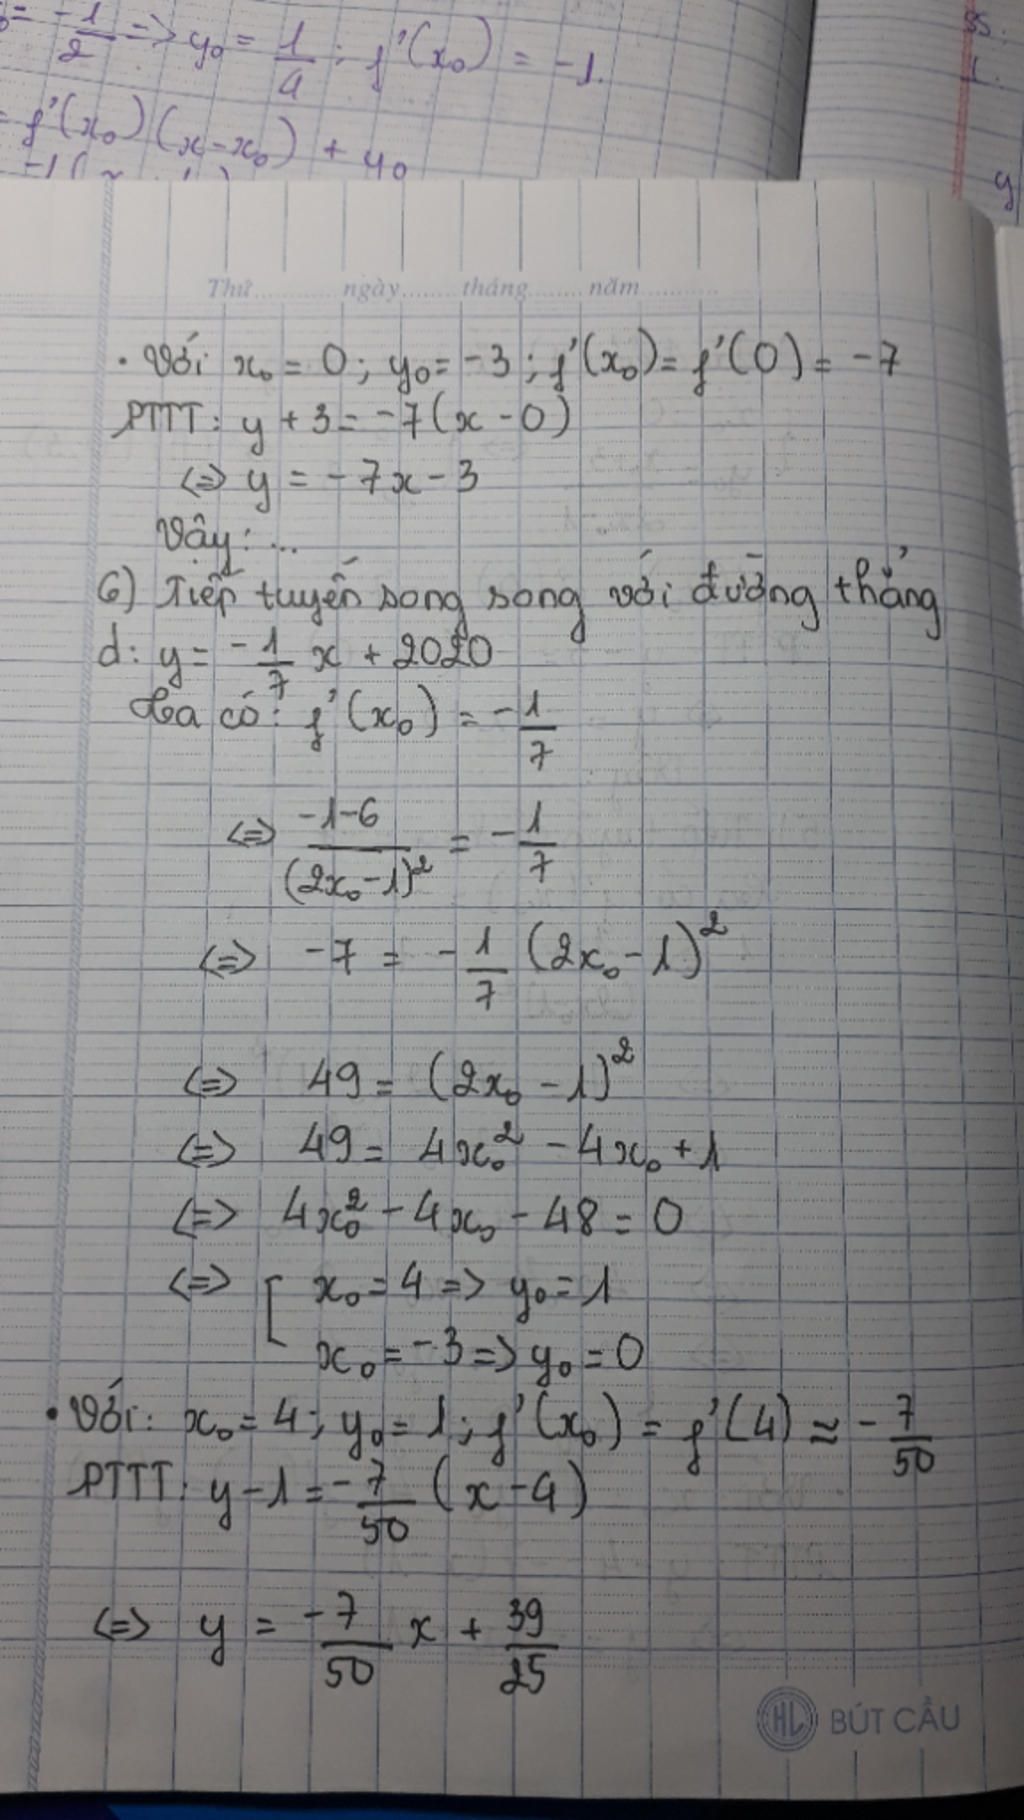 = -1/2 => y₀ = 1/4 ; f'(x₀) = -1.
= f'(x₀)(x-x₀) + y₀
y
Thứ............ngày........tháng........năm............
. Với x₀ = 0; y₀ = -3; f'(x₀) = f'(0) = -7
PTTT: y + 3 = -7(x - 0)
<=> y = -7x - 3
Vây: ...
6) Tiếp tuyến song song với đường thẳng
d: y = -1/7 x + 2020
Ta có: f'(x₀) = -1/7
<=> (-1-6)/(2x₀-1)² = -1/7
<=> -7 = -1/7 (2x₀ - 1)²
<=> 49 = (2x₀ - 1)²
<=> 49 = 4x₀² - 4x₀ + 1
<=> 4x₀² - 4x₀ - 48 = 0
<=> [ x₀ = 4 => y₀ = 1
x₀ = -3 => y₀ = 0
• Với: x₀ = 4; y₀ = 1; f'(x₀) = f'(4) ≈ -7/50
PTTT: y - 1 = -7/50 (x - 4)
<=> y = -7/50 x + 39/25
HL BÚT CẦU